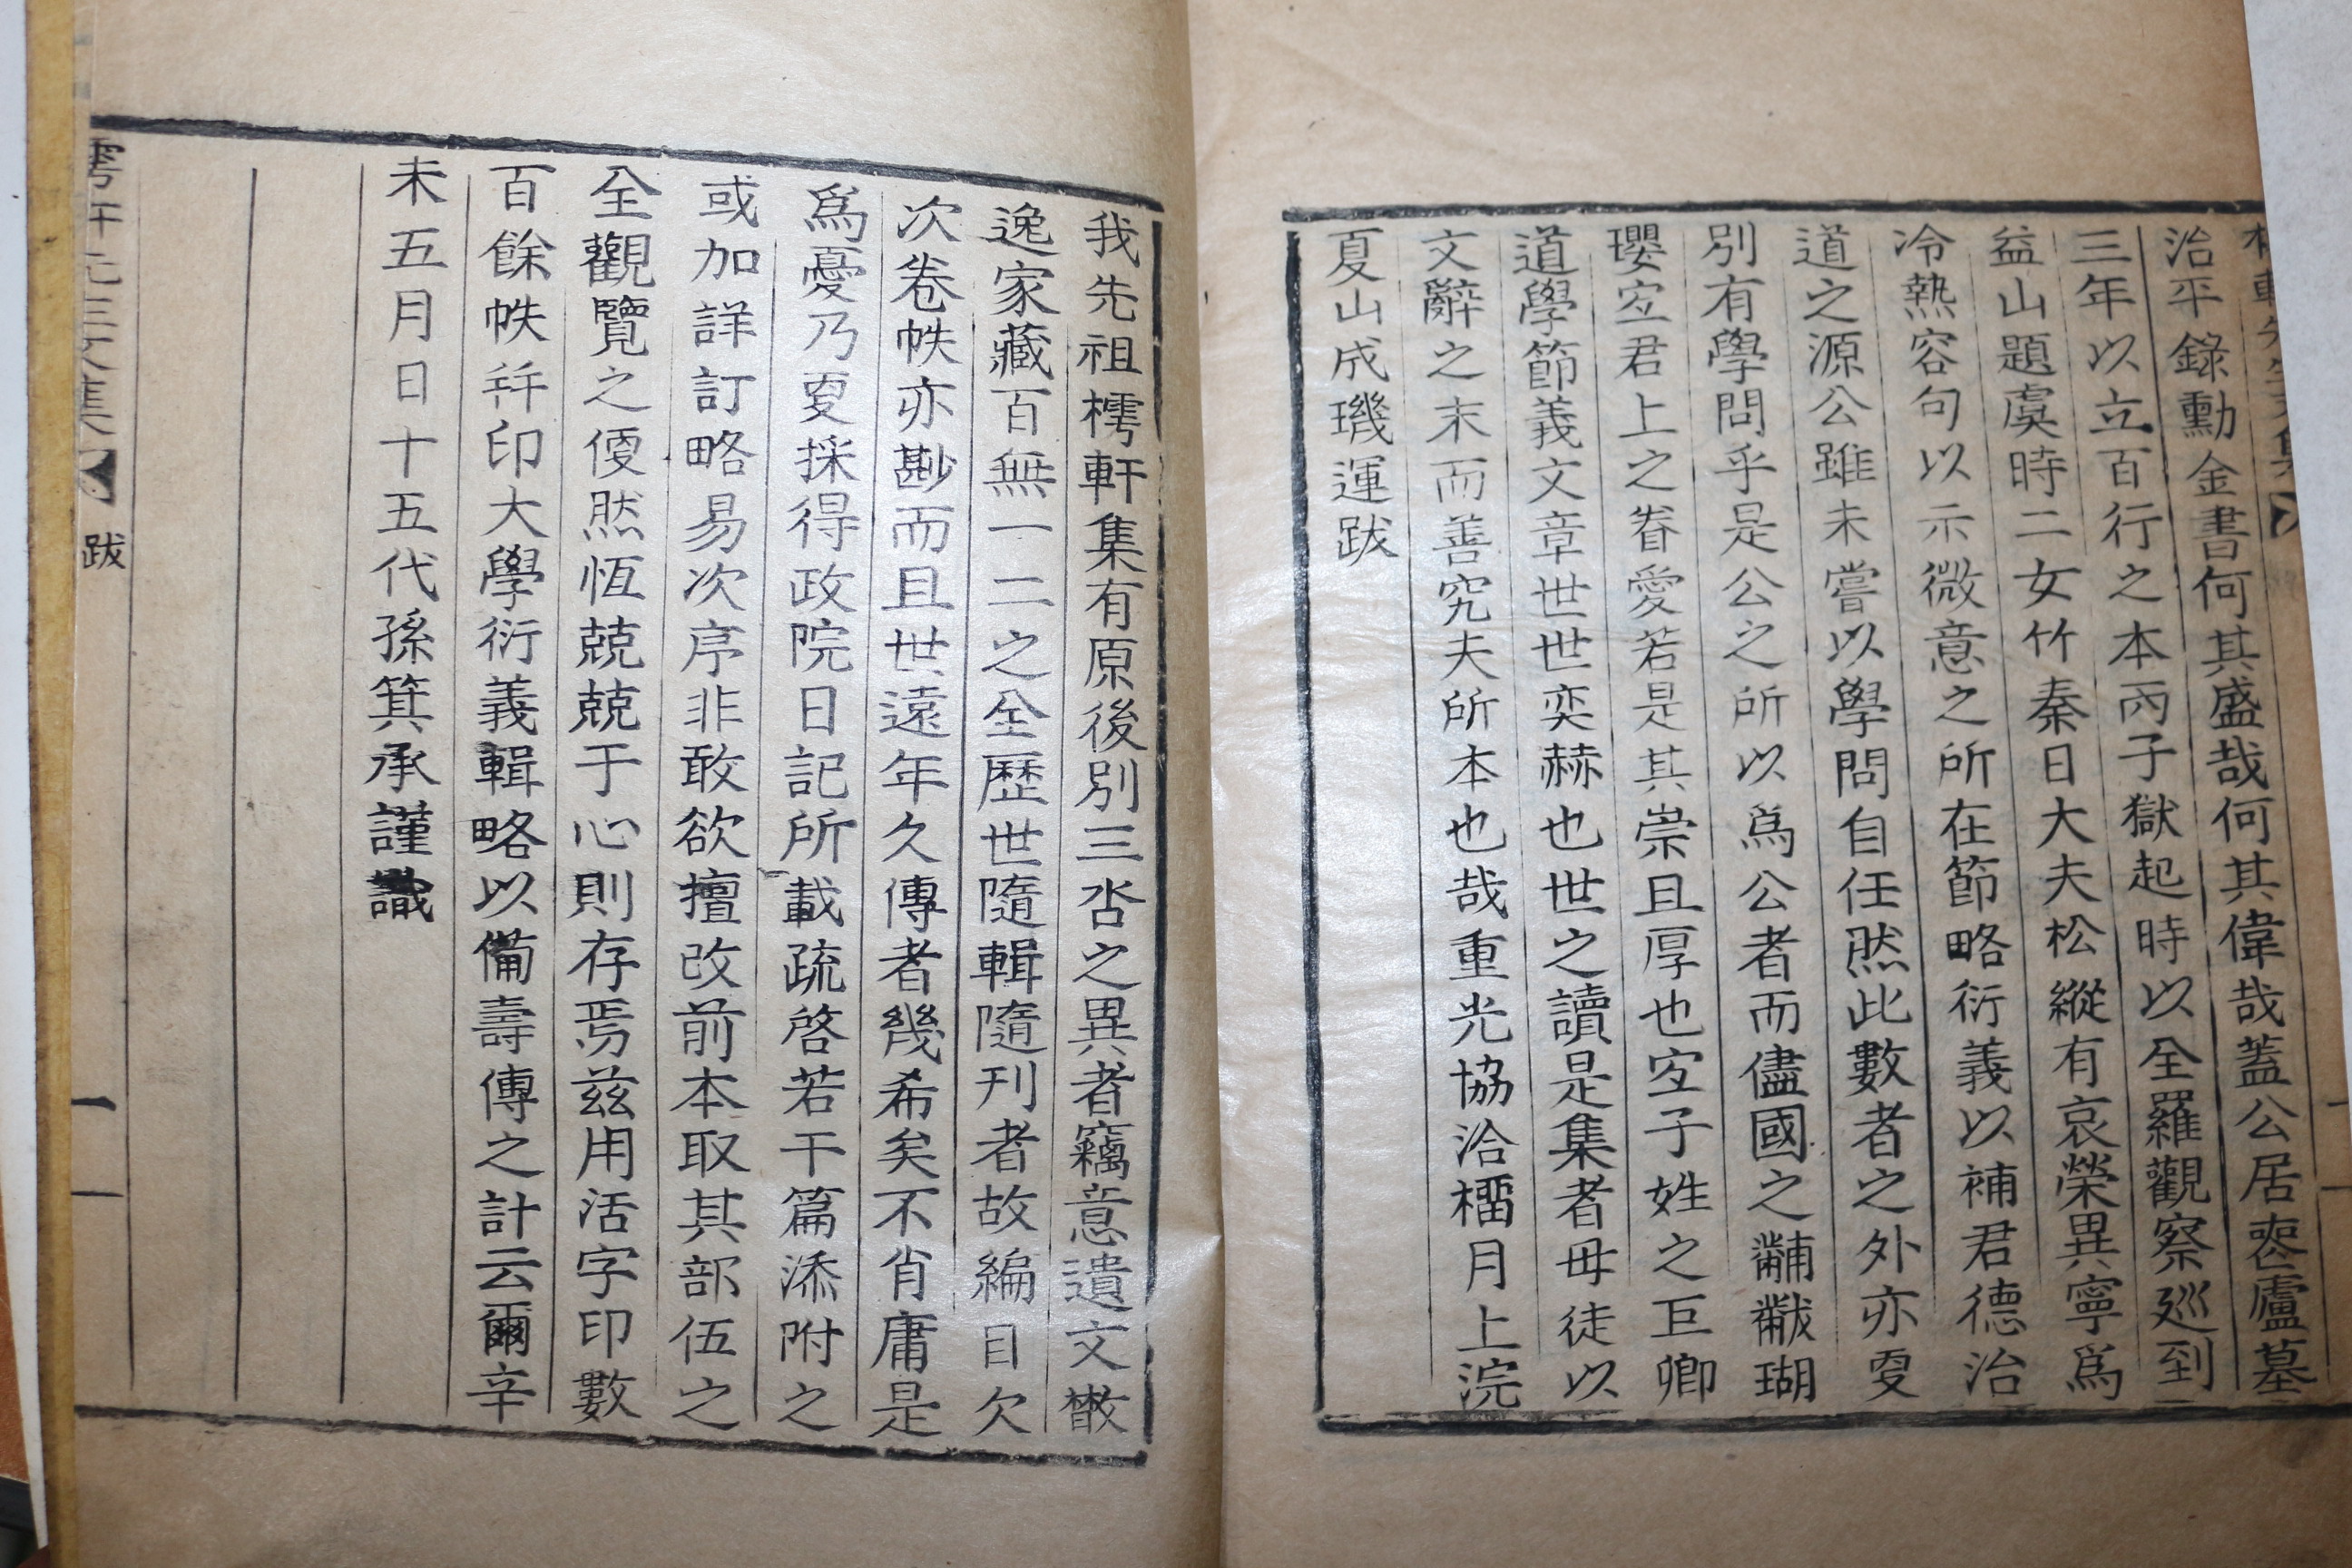 治平錄勳金書何其盛哉何其偉哉蓋公居喪廬墓
三年以立百行之本丙子獄起時以全羅觀察廵到
益山題虞時二女竹秦日大夫松縱有哀榮異寧爲
冷熱容句以示微意之所在節略衍義以補君德治
道之源公雖未嘗以學問自任然此數者之外亦𡕥
別有學問乎是公之所以爲公者而儘國之黼黻瑚
璎㝎君上之眷愛若是其崇且厚也㝎子姓之巨卿
道學節義文章世世奕赫也世之讀是集者毋徒以
文辭之末而善究夫所本也哉重光協洽橊月上浣
夏山成璣運跋
我先祖樗軒集有原後別三呇之異者竊意遺文散
逸家藏百無一二之全歷世隨輯隨刊者故編目欠
次卷帙亦尠而且世遠年久傳者幾希矣不肖庸是
爲憂乃𡕥採得政院日記所載疏啓若干篇添附之
或加詳訂略易次序非敢欲擅改前本取其部伍之
全觀覽之便然恆兢兢于心則存焉玆用活字印數
百餘帙幷印大學衍義輯略以備壽傳之計云爾辛
未五月日十五代孫箕承謹識
跋